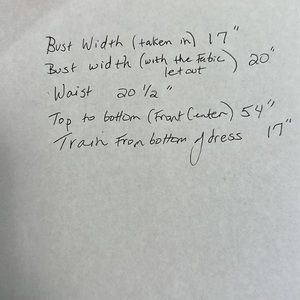 Bust Width (taken in) 17"
Bust width (with the Fabic let out) 20"
Waist 20 1/2"
Top to bottom (Front Center) 54"
Train From bottom of dress 17"